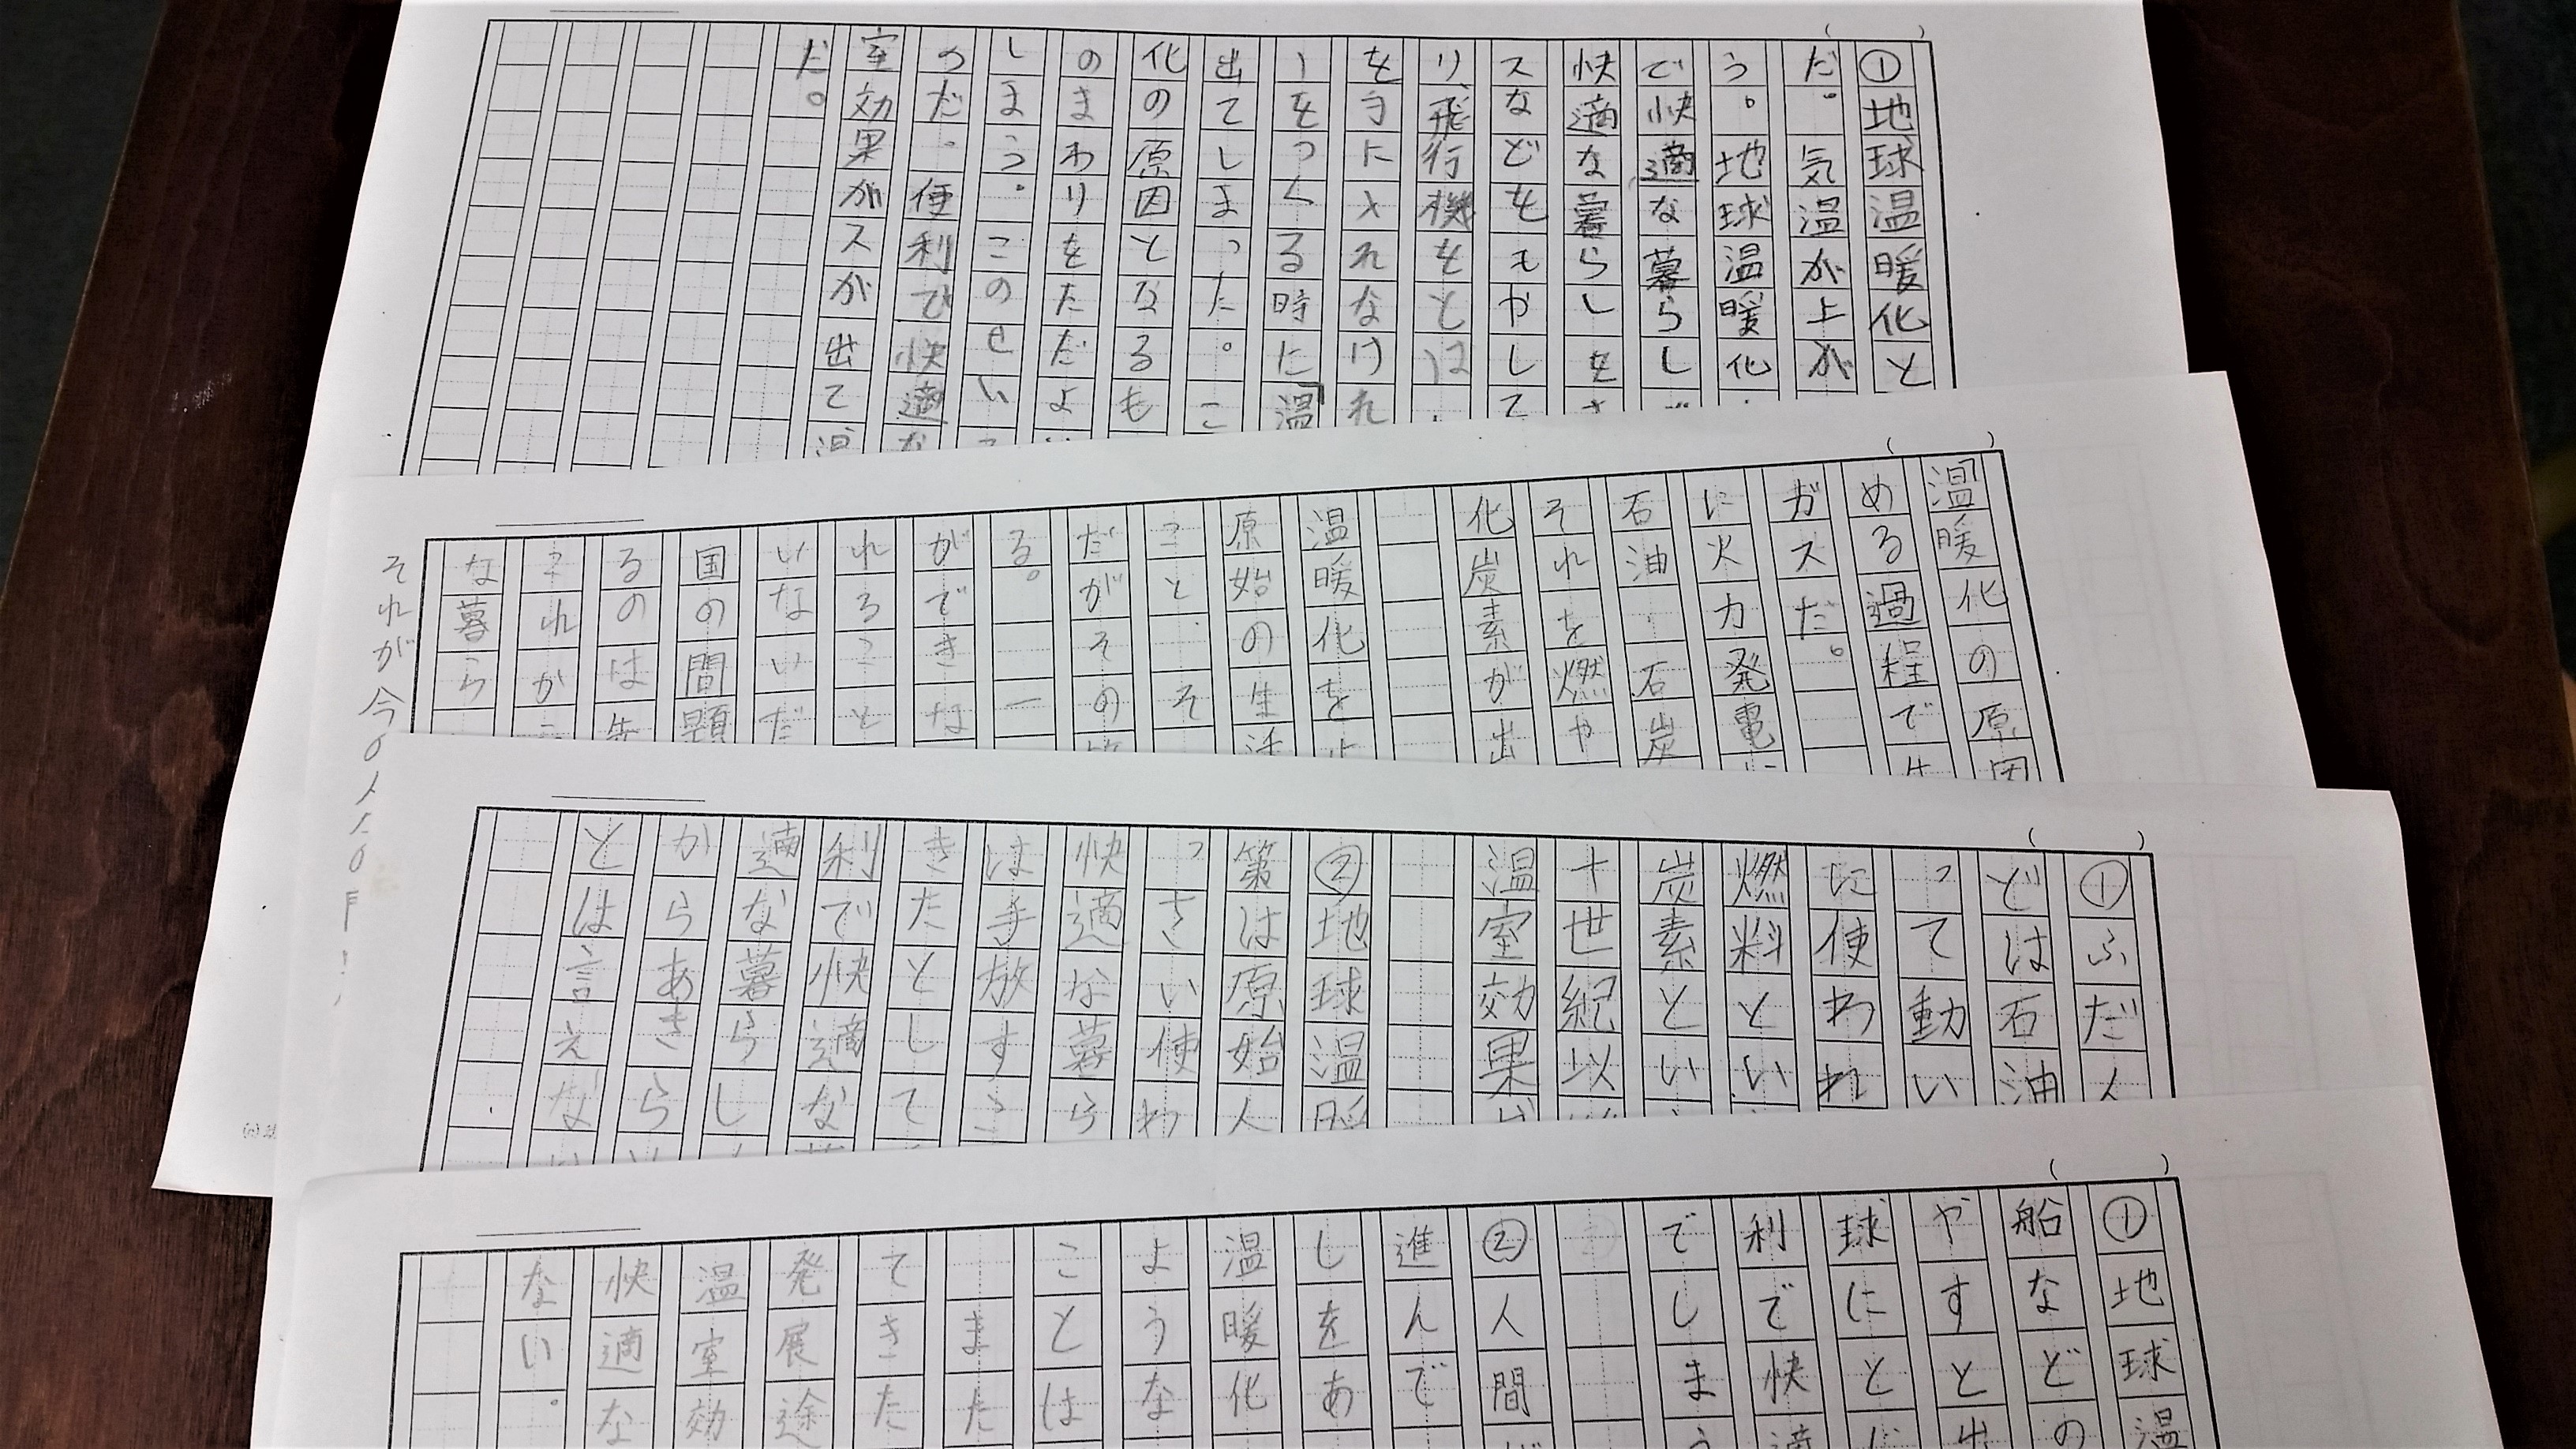 ①地球温暖化と
だ。気温が上が
う。地球温暖化
で快適な暮らし
快適な暮らしをさ
スなどをもやして
り、飛行機をとば
を手に入れなけれ
ーをつくる時に温
出てしまった。こ
化の原因となるも
のまわりをただよ
しまう。このせい
つだ。便利で快適な
室効果がスが出て温
だ。
温暖化の原因
める過程で
ガスだ。
に火力発電
石油、石炭
それを燃や
化炭素が出
温暖化を止
原始の生活
こと、そ
だがその
る。一
ができな
れること
いないだ
国の問題
るのは先
これから
な暮ら
それが今の人
①ふだん
どは石油
って動い
に使われ
燃料とい
炭素とい
十世紀以
温室効果が
②地球温暖
策は原始人
っさい使わ
快適な暮ら
は手放すこ
きたとして
利で快適な
適な暮らし
からあきらめ
とは言えない
①地球温
船などの
やすと出
球にとど
利で快適
でしまう
②人間が
進んで
しをあ
温暖化
ような
ことは
また
てきた
発展途
温室効
快適な
ない。